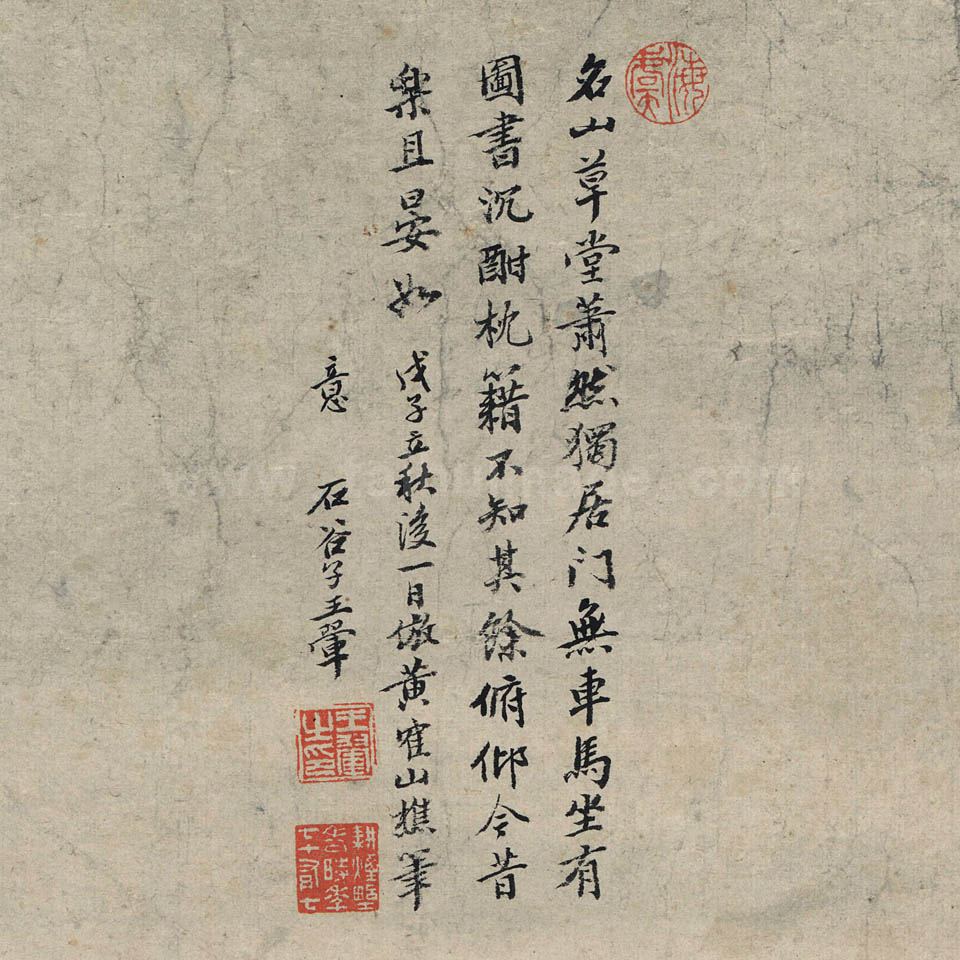 海虞
名山草堂蕭然獨居門無車馬坐有
圖書沉酣枕籍不知其餘俯仰今昔
樂且晏如 戊子立秋後一日倣黃寉山樵筆
意 石谷子王翬
王翬之印
耕煙野老時年七十有七